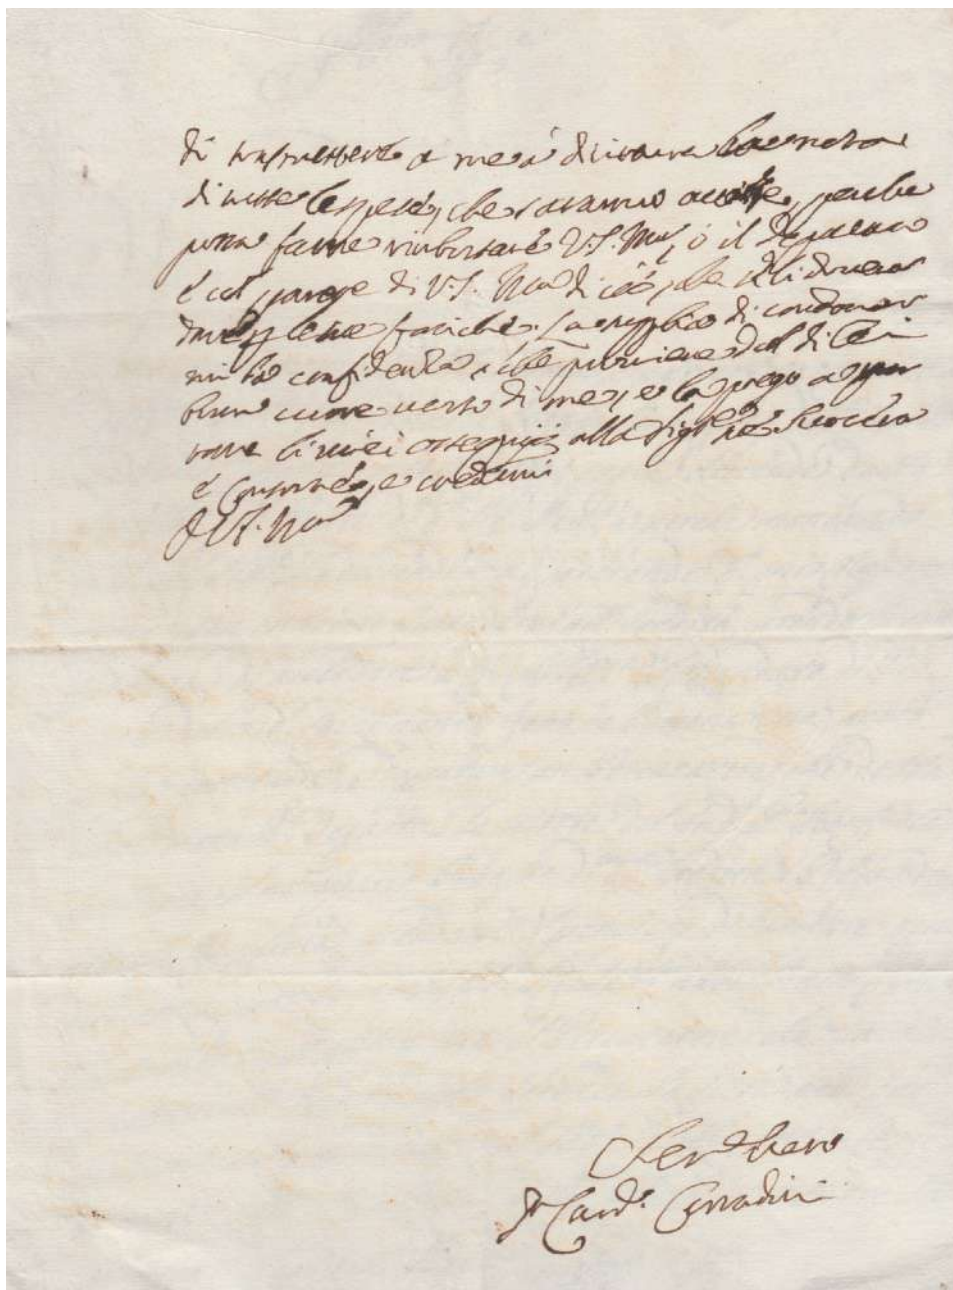 di trasmettere a me a dirittura la nota
di tutte le spese, che saranno accadute, perche
possa farne rimborsare V.S. Ill, ò il Deputato
è col parere di V.S. Ill di ciò, che se li doverà
fatiche. La supplico di condonar
mi la confidenza, che proviene dal di Lei
buon cuore verso di me, e la prego a por
tare li miei ossequij alla Sig
è Consorte, e credermi
di V.S. Ill
Ser vero
Card. Corradini